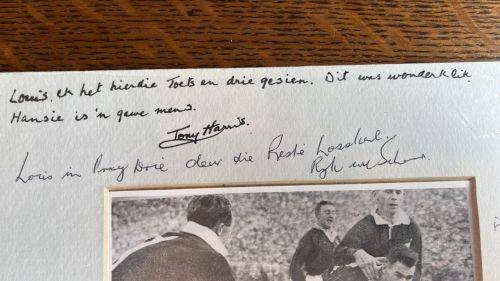 Louis, ek het hierdie Toets en drie gesien. Dit was wonderlik.
Hansie is 'n gawe mens.
Tony Harris.
Louis in Pragg Drie deur die Beste Losskakel.